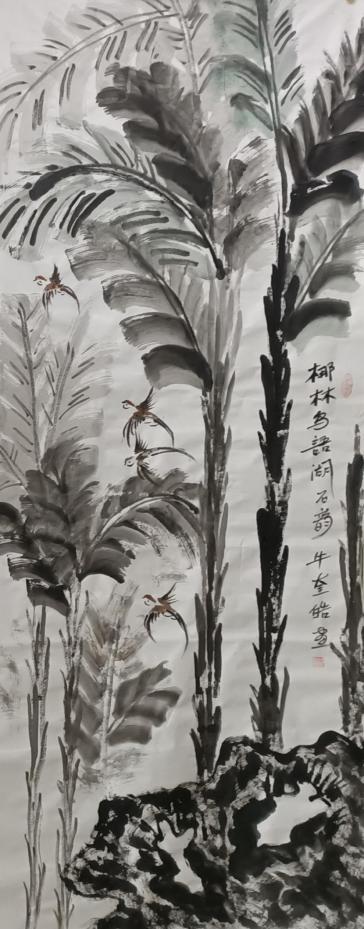 椰林鸟語湖石韵 牛奎皓画